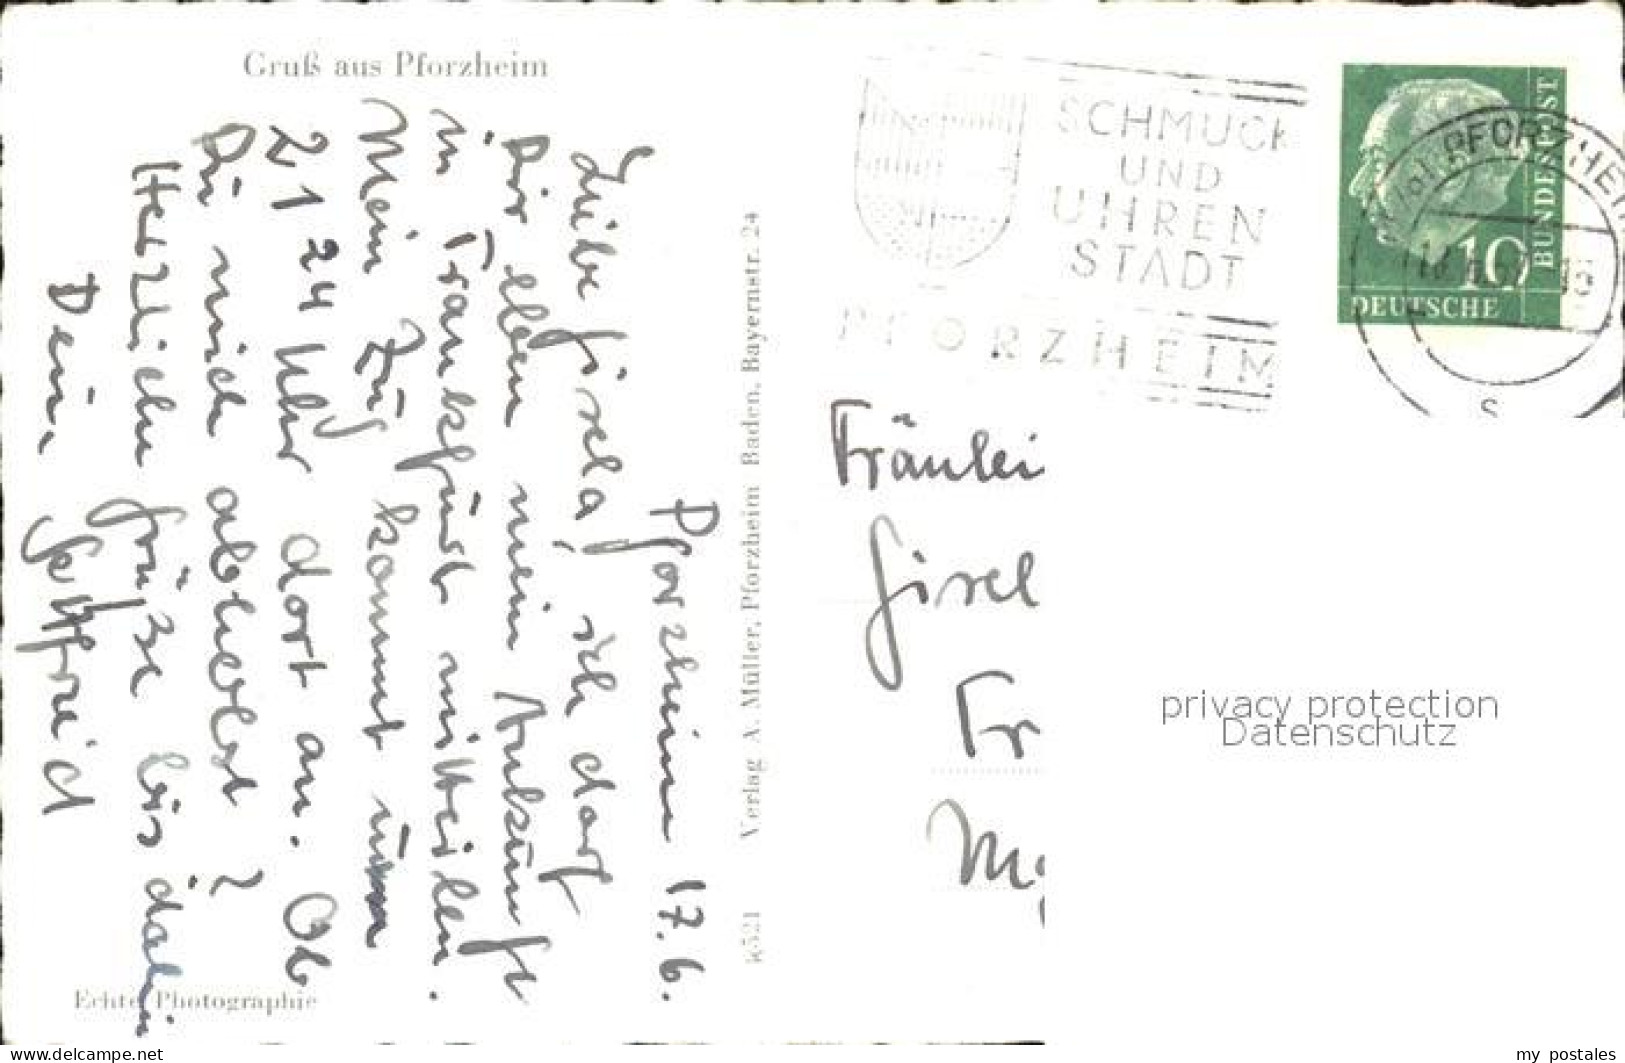 Gruß aus Pforzheim
Pforzheim 17.6.
Liebe Gisela, ich darf
Dir eben mein Ankunft
in Frankfurt mitteilen.
Mein Zug kommt um
21 24 Uhr dort an. Ob
Du mich abholst?
Herzliche Grüße bis dahin
Dein
Echte Photographie
Verlag A. Müller, Pforzheim Baden, Bayernstr. 24
SCHMUCK
UND
UHREN
STADT
PFORZHEIM
BUNDESPOST
10
DEUTSCHE
PFORZHEIM
Fräulei
Gisel
Fr
privacy protection
Datenschutz
www.delcampe.net
my_postales